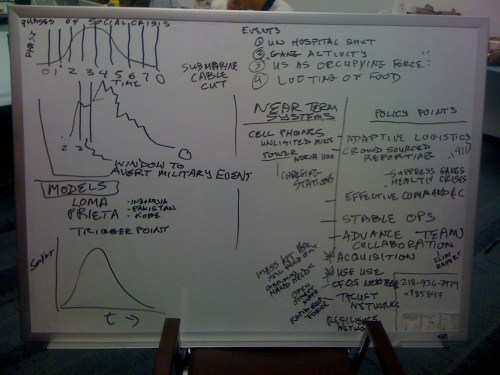 PHASES OF SOCIAL CRISIS
PANIC
0 1 2 3 4 5 6 7 0
TIME
2 3
WINDOW TO
AVERT MILITARY EVENT
SUBMARINE
CABLE
CUT
EVENTS
① UN HOSPITAL SHUT
② GANG ACTIVITY "
③ US AS OCCUPYING FORCE:
④ LOOTING OF FOOD
MODELS
LOMA
PRIETA
• INDONESIA
• PAKISTAN
• KOBE
TRIGGER POINT
t →
NEAR TERM
SYSTEMS
CELL PHONES
UNLIMITED MINS
POWER
NOKIA 1100
CHARGING
STATIONS
POLICY POINTS
ADAPTIVE LOGISTICS
CROWD SOURCED
REPORTING
SUPPRESS GANGS
HEALTH CRISES
EFFECTIVE COMMAND & C
STABLE OPS
ADVANCE TEAM
COLLABORATION
ACQUISITION
USE USE
TRUST
NETWORKS
RESILIENCE
NETWORK
218-936-7979